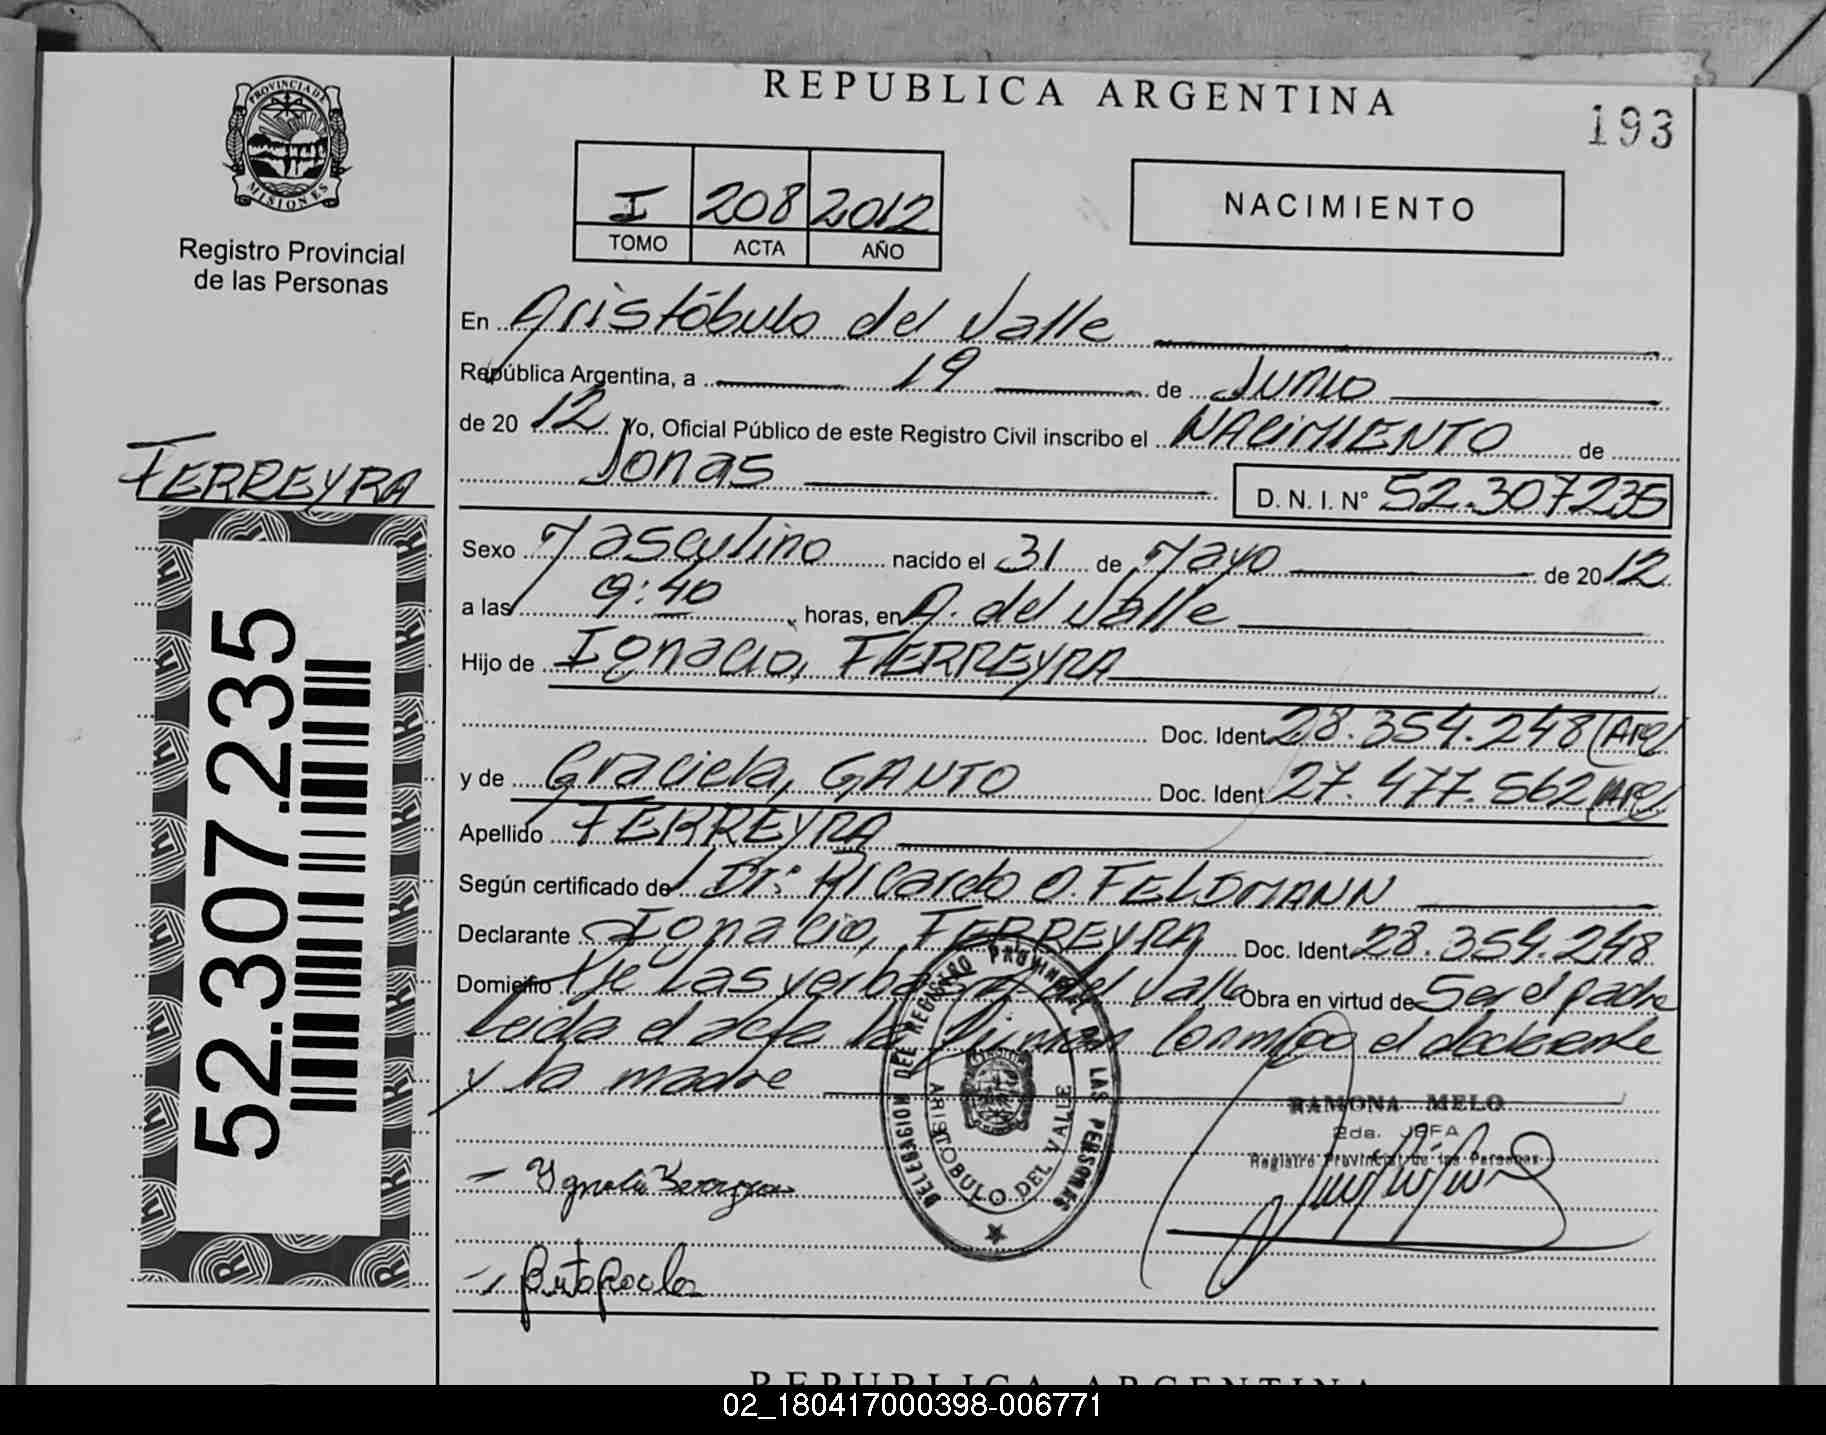 PROVINCIA DE
MISIONES
Registro Provincial
de las Personas
REPUBLICA ARGENTINA
193
I 208 2012
TOMO ACTA AÑO
NACIMIENTO
En Aristóbulo del Valle
República Argentina, a 19 de Junio
de 20 12 Yo, Oficial Público de este Registro Civil inscribo el NACIMIENTO de
Jonas D. N. I. N° 52.307235
FERREYRA
52.307.235
Sexo Masculino nacido el 31 de Mayo de 20 12
a las 9:40 horas, en A. del Valle
Hijo de Ignacio, FERREYRA
Doc. Ident 28.354.248 (Arg)
y de Graciela, GAUTO Doc. Ident 27.477.562 (Arg)
Apellido FERREYRA
Según certificado de Dr: Ricardo O. FELDMANN
Declarante Ignacio, FERREYRA Doc. Ident 28.354.248
Domicilio Pje Las yerbas A. del Valle Obra en virtud de Ser el padre
Leida el acta la firman conmigo el declarante
y la madre
DELEGACION DEL REGISTRO PROVINCIAL DE LAS PERSONAS
ARISTOBULO DEL VALLE
RAMONA MELO
2da. JEFA
Registro Provincial de las Personas
REPUBLICA ARGENTINA
02_180417000398-006771